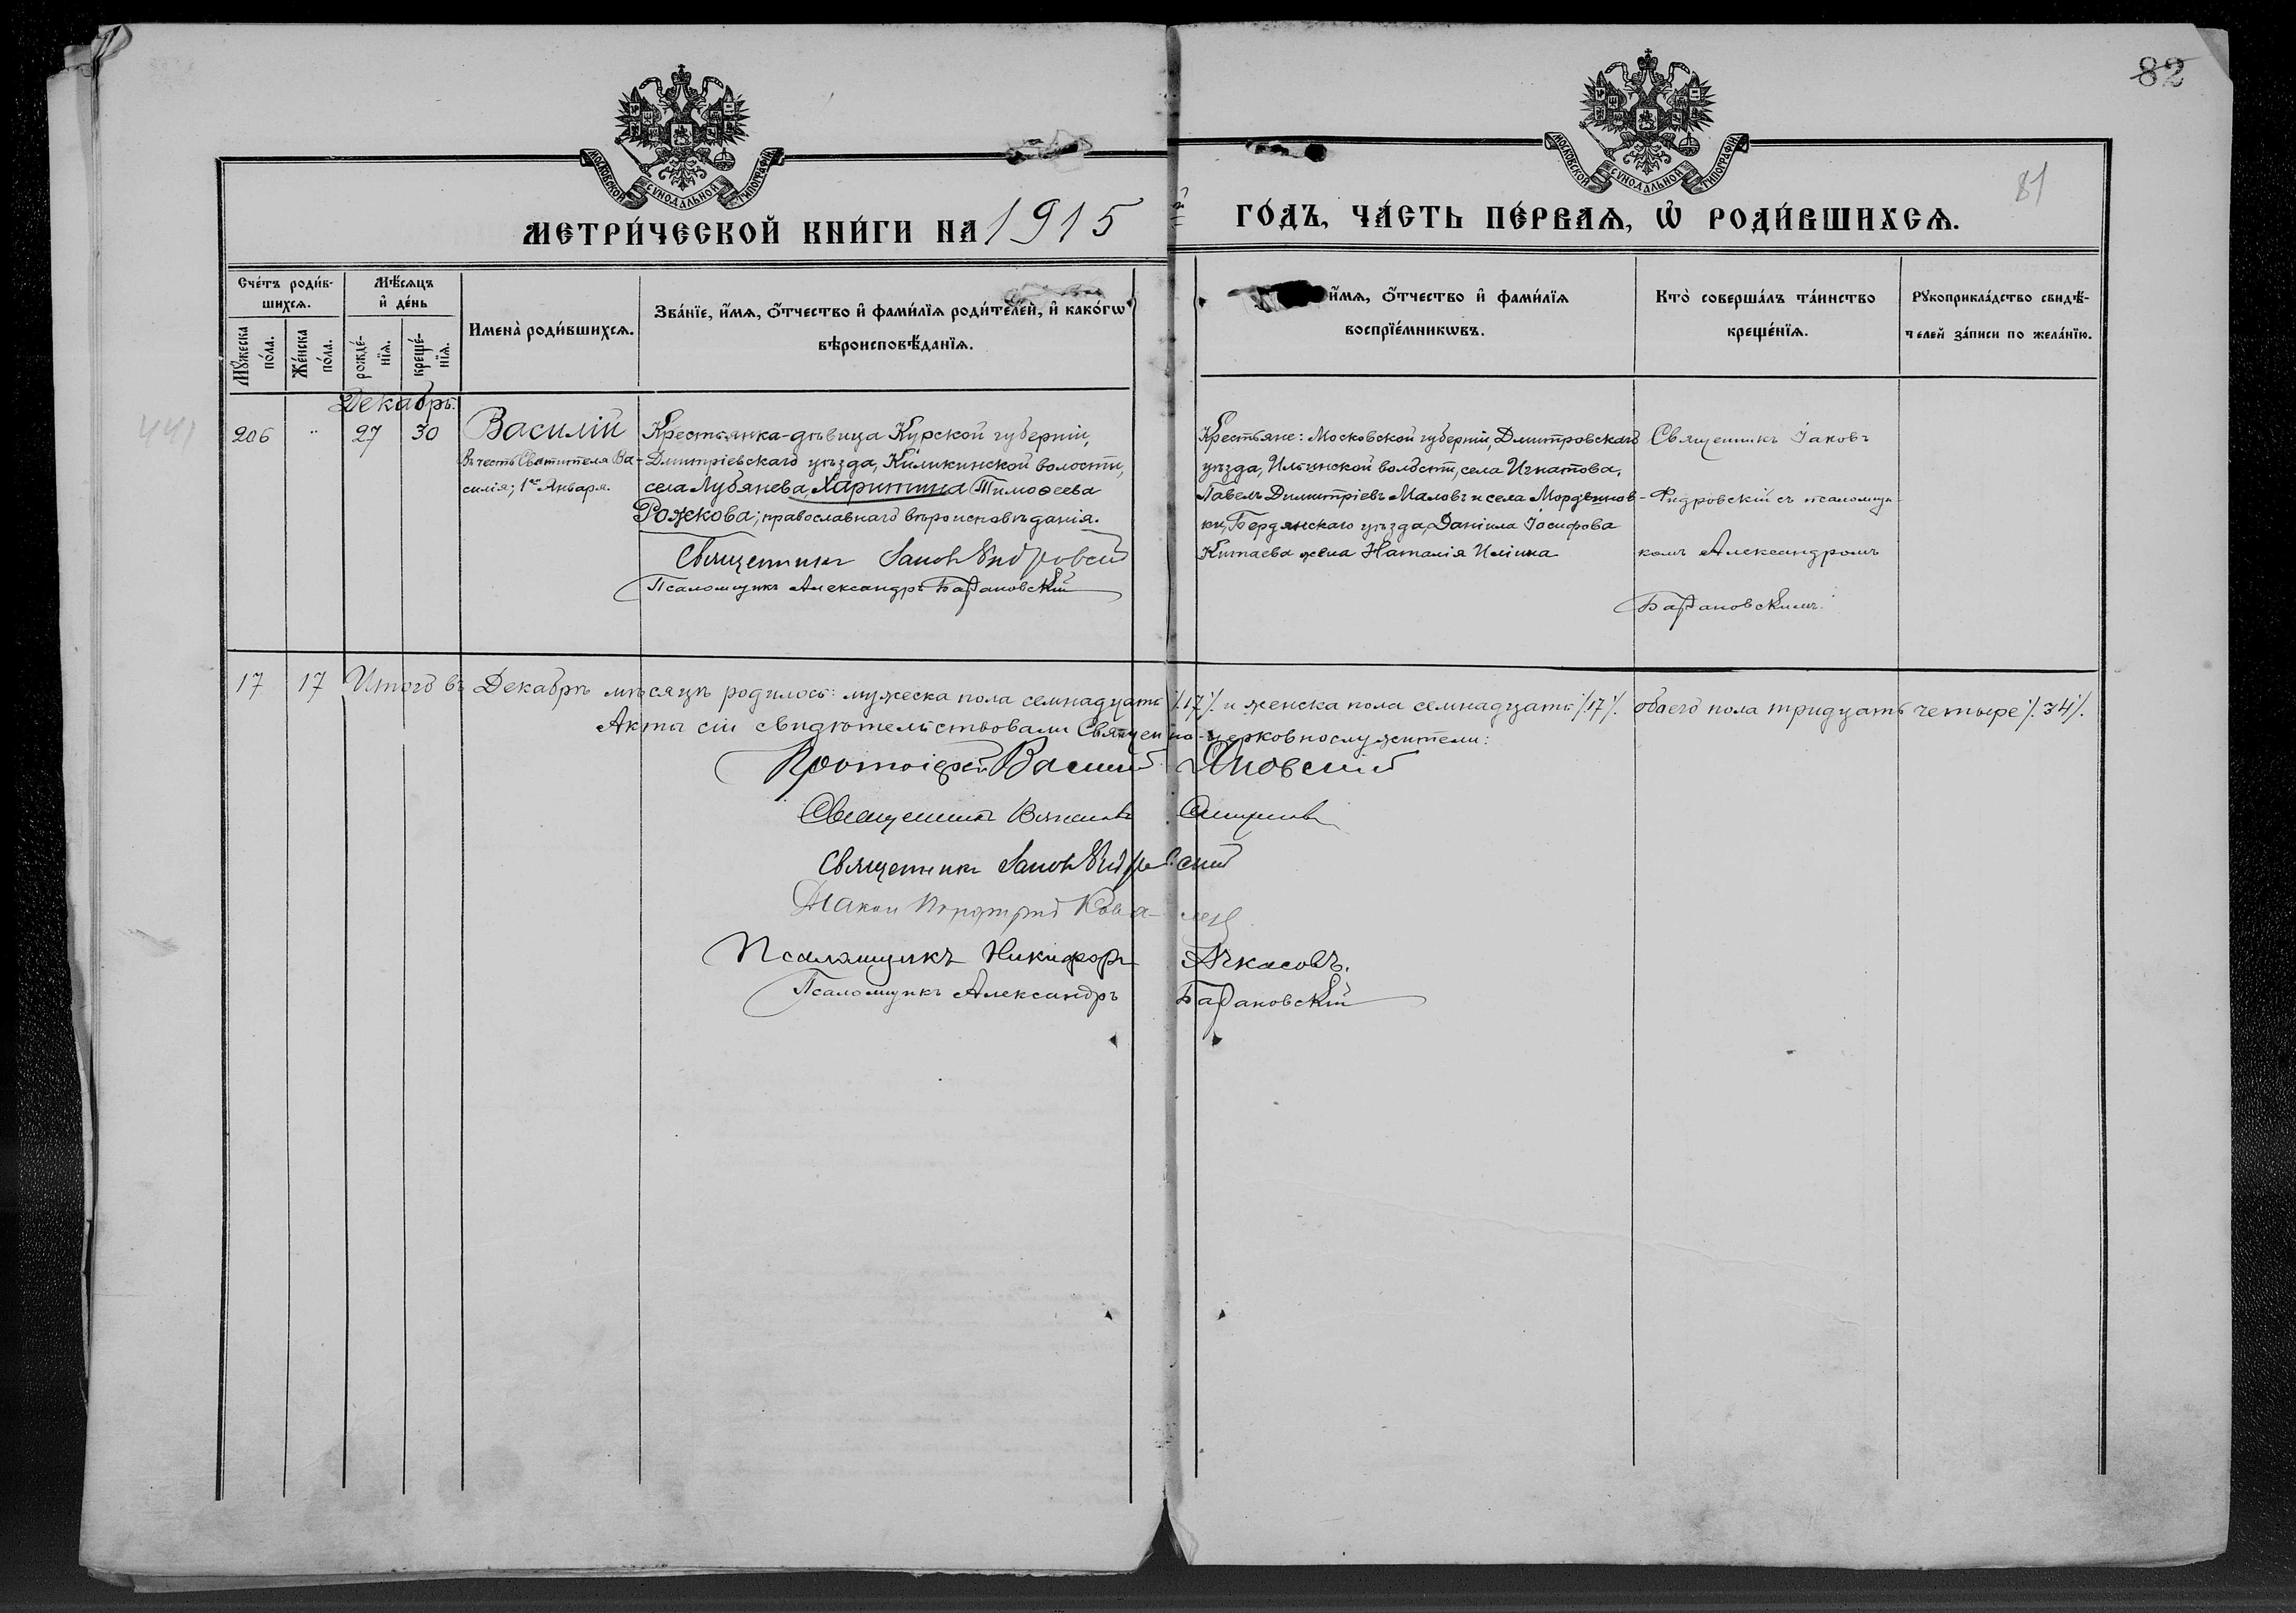 82
81
МОСКОВСКОЙ СУНОДАЛЬНОЙ ТИПОГРАФІИ
МОСКОВСКОЙ СУНОДАЛЬНОЙ ТИПОГРАФІИ
МЕТРИ́ЧЕСКОЙ КНИ́ГИ НА 1915 й ГО́ДЪ, ЧА́СТЬ ПЕ́РВАѦ, Ѡ҆ РОДИ́ВШИХСѦ.
Сче́тъ роди́в-
шихсѧ.
Мꙋ́жеска по́ла.
Же́нска по́ла.
Мѣ́сѧцъ
и҆ де́нь
рожде́-
нїѧ.
креще́-
нїѧ.
Имена̀ роди́вшихсѧ.
Зва́нїе, и҆́мѧ, ѻ҆́тчество и҆ фами́лїѧ роди́телей, и҆ како́гѡ
вѣроисповѣ́данїѧ.
и҆́мѧ, ѻ҆́тчество и҆ фами́лїѧ
воспрїе́мникѡвъ.
Кто̀ соверша́лъ та́инство
креще́нїѧ.
Рꙋкоприкла́дство свидѣ́-
телей за́писи по жела́нїю.
Декабрь.
441
206
"
27
30
Василій
въ честь Святителя Ва-
силія; 1го Января.
Крестьянка-дѣвица Курской губерніи,
Дмитріевскаго уѣзда, Киликинской волости,
села Лубянева, Харитина Тимофеева
Рожкова; православнаго вѣроисповѣданія.
Священникъ Іаковъ Фидровскій
Псаломщикъ Александръ Барановскій
Крестьяне: Московской губерніи, Дмитровскаго
уѣзда, Ильинской волости, села Игнатова,
Павелъ Димитріевъ Маловъ и села Мордвинов-
ки, Бердянскаго уѣзда, Даніила Іосифова
Китаева жена Наталія Иліина
Священникъ Іаковъ
Фидровскій съ псаломщи-
комъ Александромъ
Барановскимъ.
17
17
Итого въ Декабрѣ мѣсяцѣ родилось: мужеска пола семнадцать /.17/. и женска пола семнадцать /.17/. обоего пола тридцать четыре /.34/.
Акты сіи свидѣтельствовали Священно-церковнослужители:
Протоіерей Василій Яновскій
Священникъ
Священникъ Іаковъ Фидровскій
Діаконъ Порфирій
Псаломщикъ Никифоръ Ачкасовъ.
Псаломщикъ Александръ Барановскій